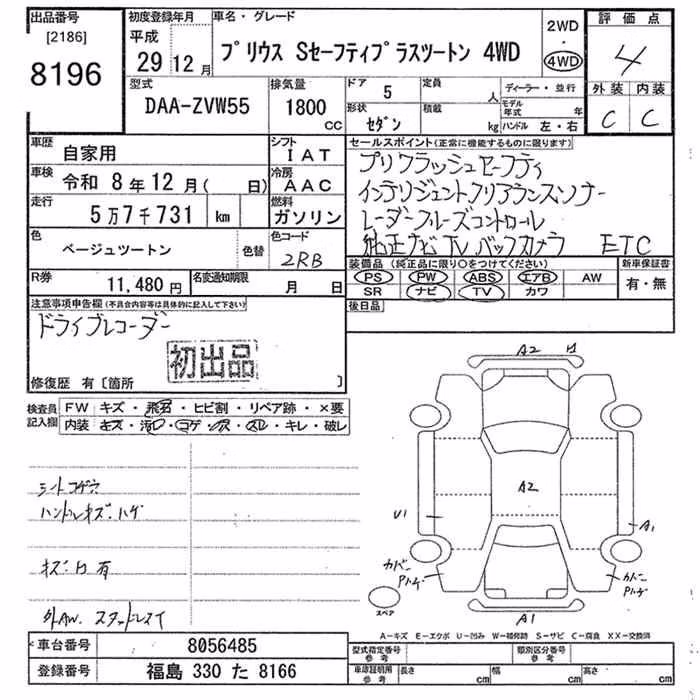 出品番号
[2186]
8196
初度登録年月
平成
29 12 月
車名・グレード
プリウス Sセーフティプラスツートン 4WD
2WD
・
4WD
評価点
4
外装 内装
C C
型式
DAA-ZVW55
排気量
1800
CC
ドア 5
形状
セダン
定員 人
積載 kg
ディーラー・並行
モデル年式 年
ハンドル 左・右
車歴
自家用
シフト
IAT
車検
令和 8年12月( 日)
冷房
AAC
走行
5万7千731 km
燃料
ガソリン
色
ベージュツートン
色替
色コード
2RB
R券
11,480 円
名変通知期限
月 日
セールスポイント(正常に機能するものに限ります)
プリクラッシュセーフティ
インテリジェントクリアランスソナー
レーダークルーズコントロール
純正ナビ TV バックカメラ ETC
装備品(純正品に限り○をつけてください)
PS PW ABS エアB AW
SR ナビ TV カワ
新車保証書
有・無
後日品
注意事項申告欄(不具合内容等は具体的に記入して下さい)
ドライブレコーダー
初出品
修復歴 有〔箇所 〕
検査員記入欄
FW キズ・飛石・ヒビ割・リペア跡・×要
内装 キズ・汚れ・コゲ・穴・スレ・キレ・破レ
シートコゲ穴
ハンドルキズ・ハゲ
キズ・凹有
外AW. スタッドレスイ
A2 凹
A2
U1
A1
カバー
Pハゲ
カバー
Pハゲ
スペア
A1
A-キズ E-エクボ U-凹み W-補修跡 S-サビ C-腐食 XX-交換済
車台番号
8056485
登録番号
福島 330 た 8166
型式指定番号
参考
類別区分番号
参考
車庫証明用
参考
長さ cm
幅 cm
高さ cm